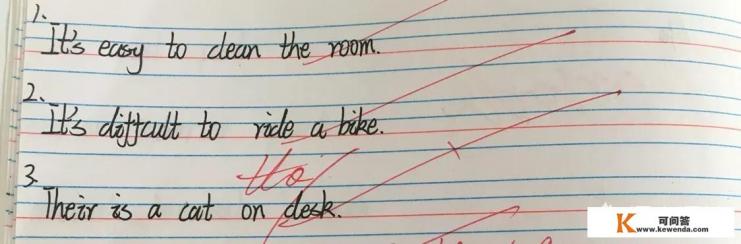 1.
It's easy to clean the room.
2.
It's difficult to ride a bike.
3.
Their is a cat on desk.
K 可问答
www.kewenda.com